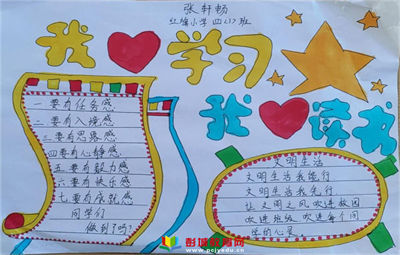 张轩畅
红旗小学四217班
我❤学习
我❤读书
一要有任务感
二要有入境感
三要有思路感
四要有心静感
五要有毅力感
六要有快乐感
七要有成就感
同学们
做到了吗?
文明生活
文明生活我能行
文明生活我先行
让文明之风吹进校园
吹进班级 吹进每个同
学的心灵
www.pcjyzx.cn